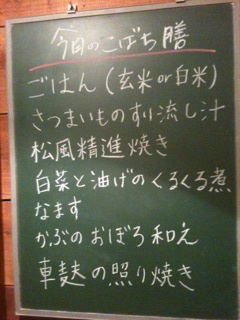 今日のこばち膳
ごはん（玄米or白米）
さつまいものすり流し汁
松風精進焼き
白菜と油げのくるくる煮
なます
かぶのおぼろ和え
車麩の照り焼き